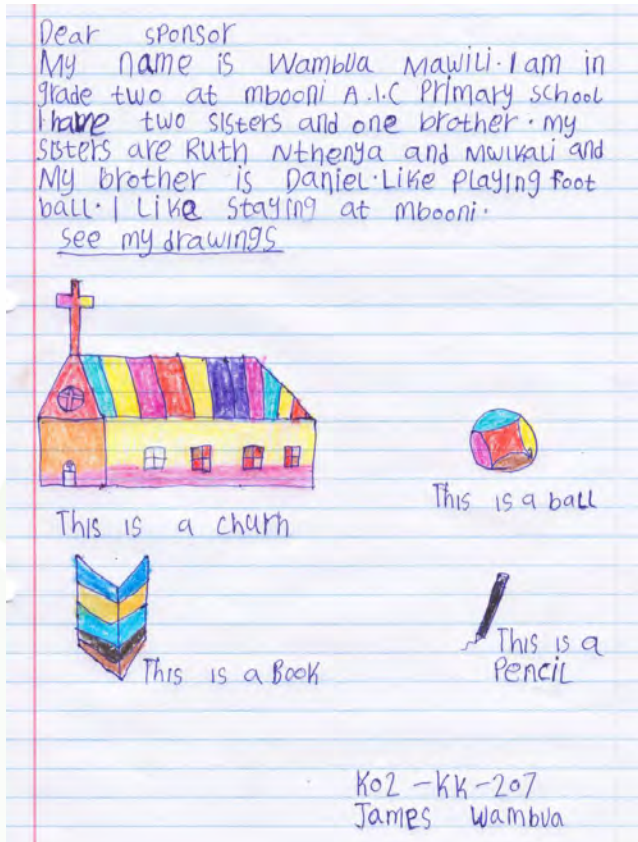 Dear sponsor
My name is Wambua Mawili. I am in
grade two at mbooni A.I.C Primary school
I have two sisters and one brother. my
sisters are Ruth Nthenya and Mwikali and
My brother is Daniel. Like Playing Foot
ball. I Like staying at mbooni.
see my drawings
This is a ball
This is a churh
This is a Book
This is a
Pencil
K02-KK-207
James Wambua